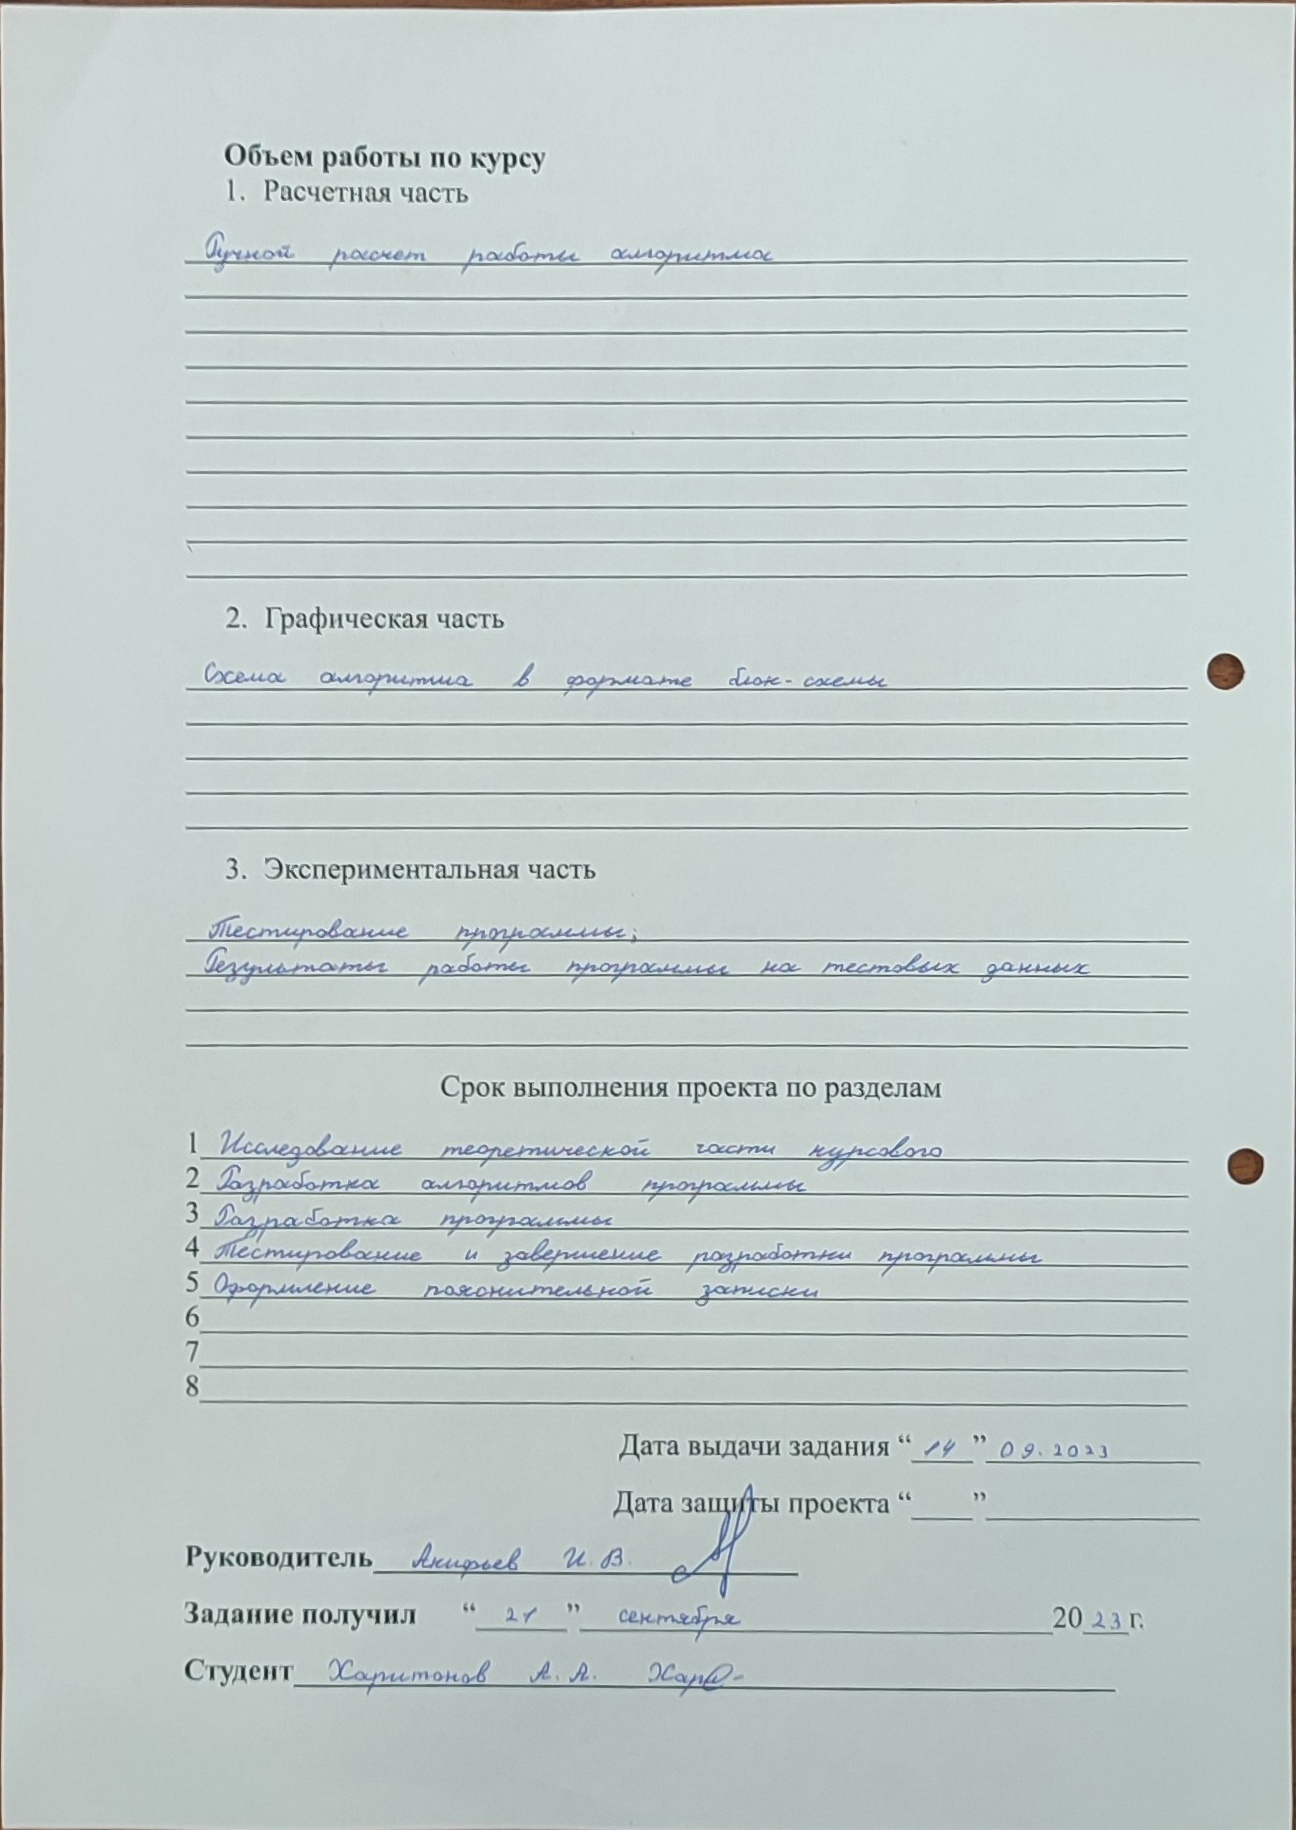 Объем работы по курсу
1. Расчетная часть
Ручной расчет работы алгоритма
2. Графическая часть
Схема алгоритма в формате блок-схемы
3. Экспериментальная часть
Тестирование программы;
Результаты работы программы на тестовых данных
Срок выполнения проекта по разделам
1 Исследование теоретической части курсового
2 Разработка алгоритмов программы
3 Разработка программы
4 Тестирование и завершение разработки программы
5 Оформление пояснительной записки
6
7
8
Дата выдачи задания “14” 09.2023
Дата защиты проекта “____”
Руководитель Акифьев И.В.
Задание получил “21” сентября 2023г.
Студент Харитонов А.А.